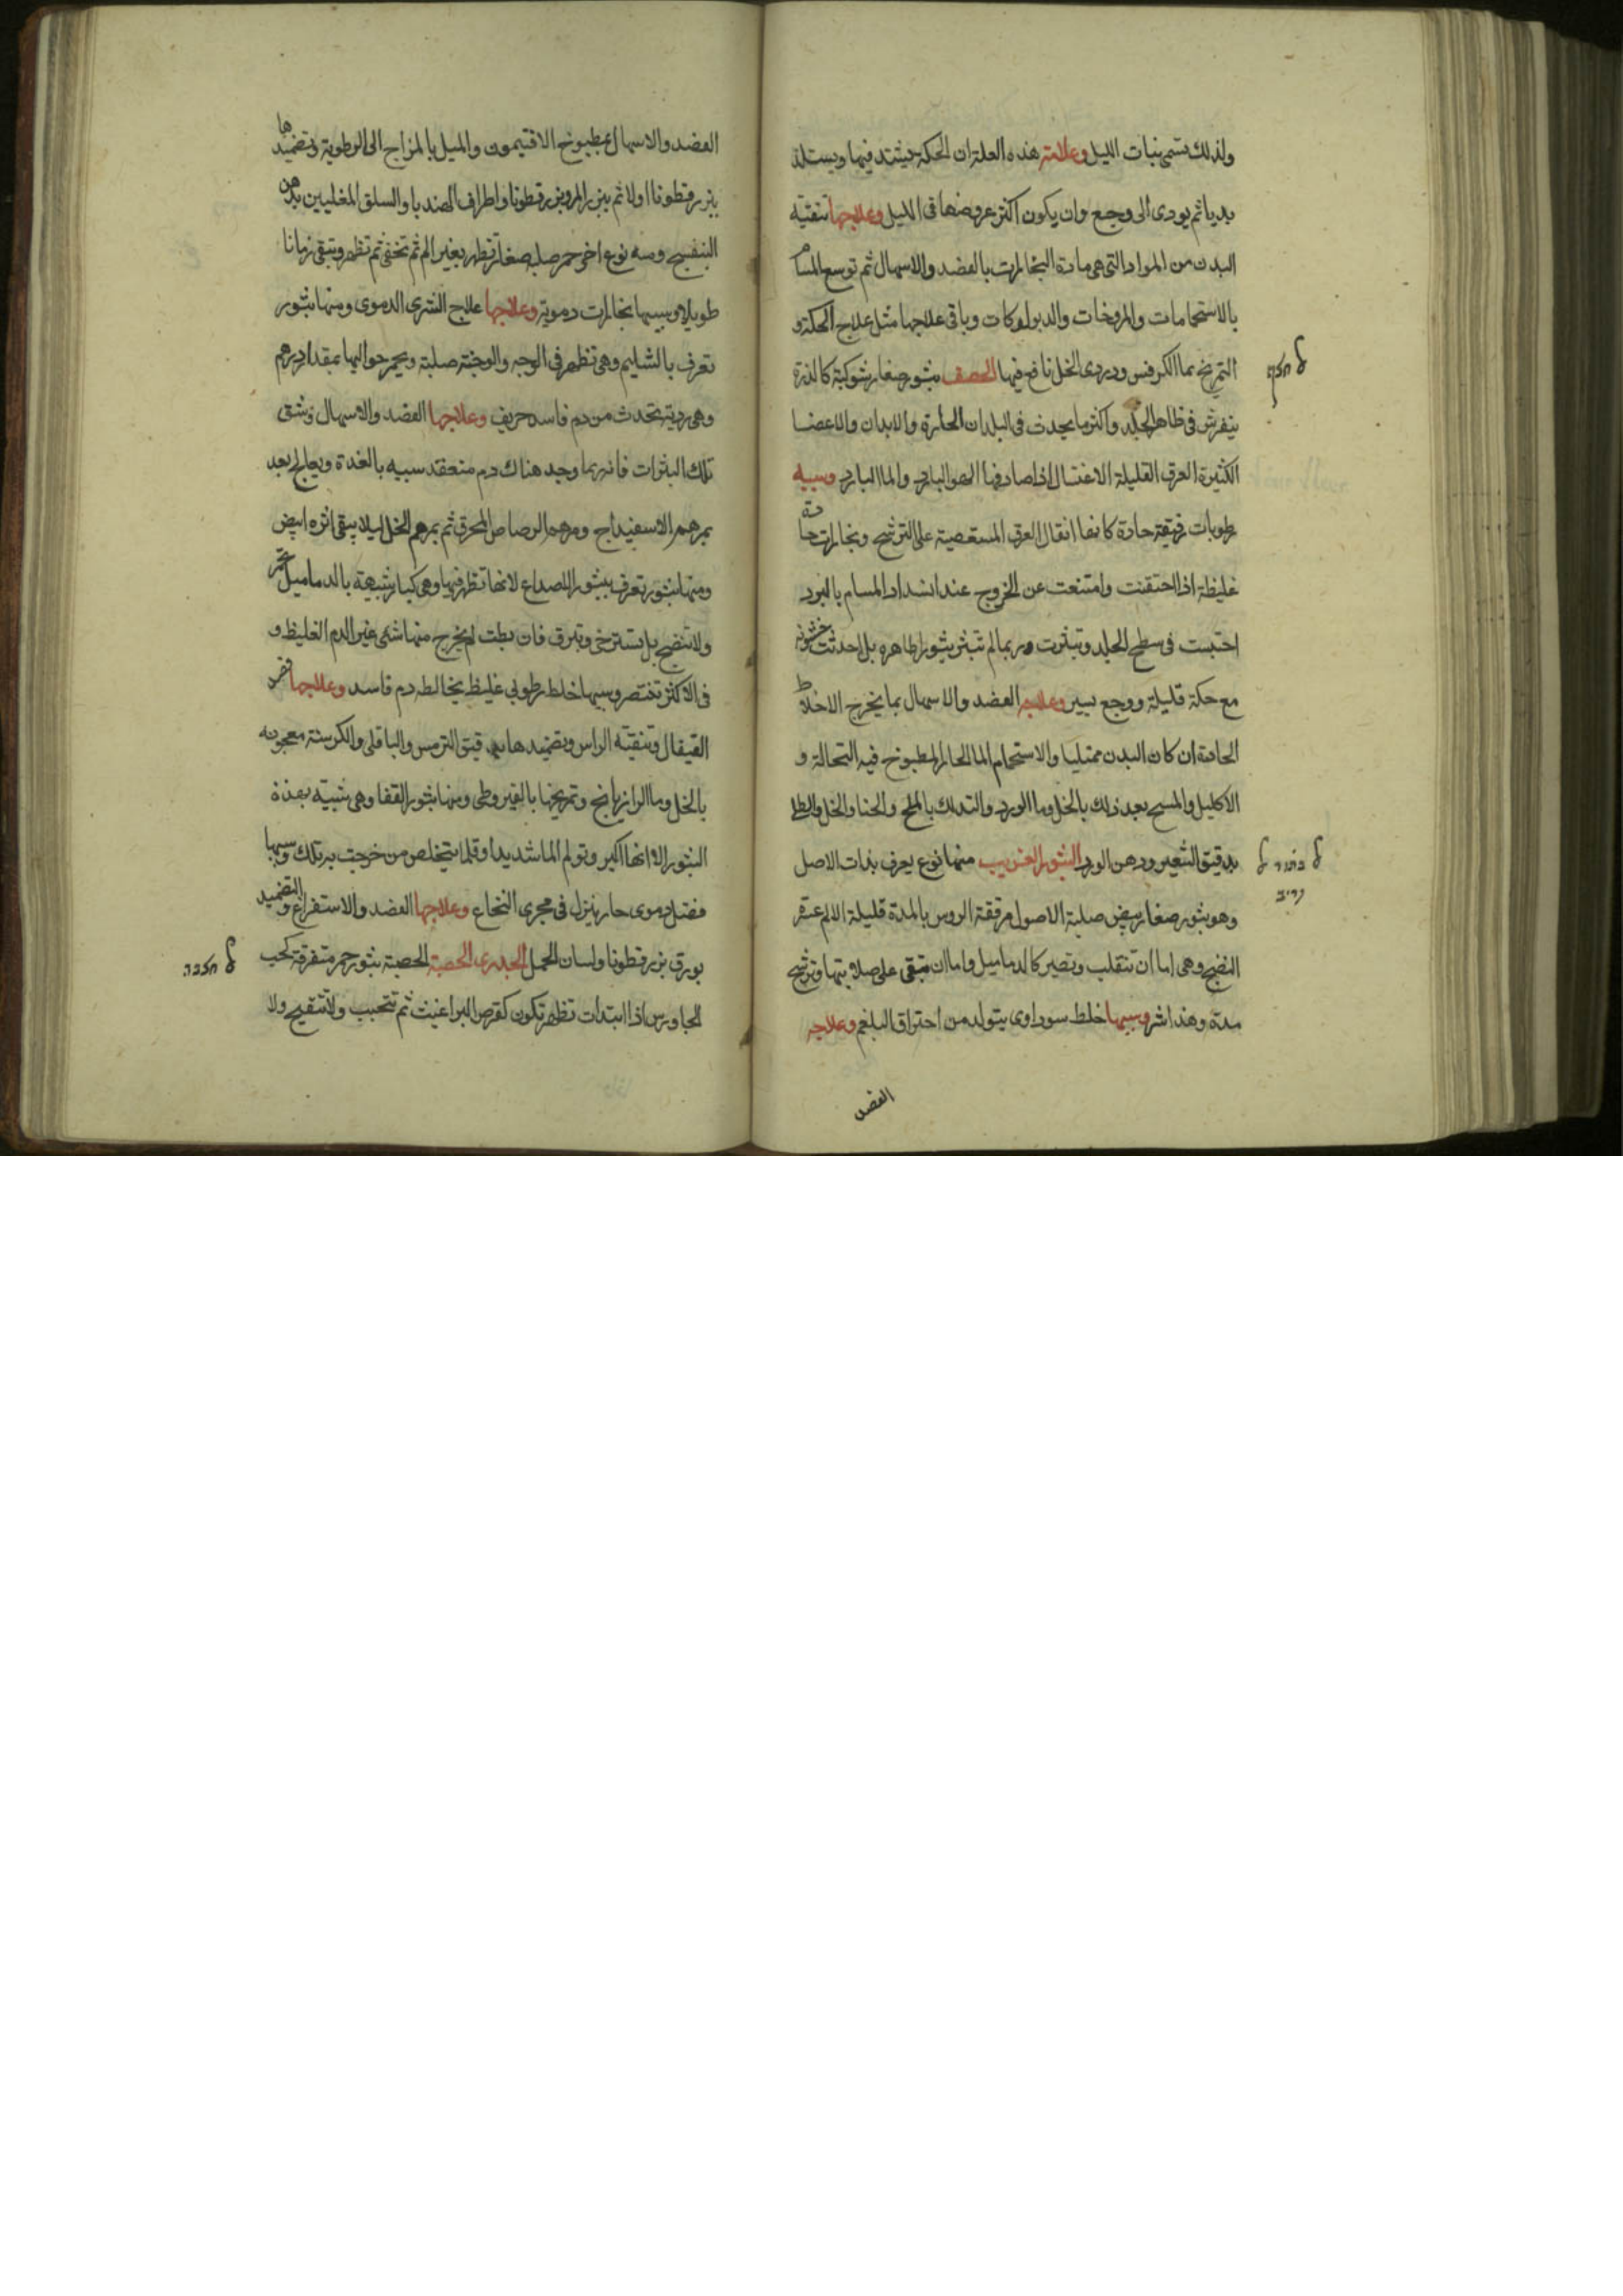 ولذلك تسمى بنات الليل وعلامته هذه العلة ان الحكة تشتد فيها ويستلذ
بديا ثم يودى الى وجع وان يكون اكثر عروضها فى الليل وعلاجها تنقية
البدن من المواد التى هى مادة البخارات بالفصد والاسهال ثم توسع المسام
بالاستحمامات والمروخات والدلوكات وباقى علاجها مثل علاج الحكة و
التمريخ بماالكرفس ودردى الخل نافع فيها الحصف بثور صغار شوكية كالذرة
ينفرش فى ظاهر الجلد واكثر ما يحدث فى البلدان الحارة والابدان والاعضا
الكثيرة العرق القليلة الاغتسال اذا صادفها الهوا البارد والما البارد وسببه
رطوبات رقيقة حادة كانها اثقال العرق المستعصية على الترشح وبخارات حادة
غليظة اذا احتقنت وامتنعت عن الخروج عند انسداد المسام بالبرد
احتبست فى سطح الجلد وتبثرت وربما لم تبثر بثورا ظاهره بل احدثت خشونه
مع حكة قليلة ووجع يسير وعلاجه الفصد والاسهال بما يخرج الاخلاط
الحادة ان كان البدن ممتليا والاستحمام الما الحار المطبوخ فيه النخالة و
الاكليل والمسح بعد ذلك بالخل وما الورد والتدلك بالملح والحنا والخل والطلى
بدقيق الشعير ودهن الورد البثور الغريب منها نوع يعرف بذات الاصل
وهو بثور صغار بيض صلبة الاصول مرققة الروس بالمدة قليلة الالم عسر
النضج وهى اما ان تنقلب وتصير كالدماميل واما ان تبقى على صلابتها وترشح
مدة وهذا شر وسببها خلط سوداوى يتولد من احتراق البلغم وعلاجه
الفصد
الفصد والاسهال بمطبوخ الافتيمون والميل بالمزاج الى الرطوبة وتضميدها
ببزرقطونا اولا ثم ببزر المرو وبزرقطونا واطراف الهندبا والسلق المغليين بدهن
البنفسج ومنه نوع اخر حمر صلبه صغار تظهر بغير الم ثم تخفى ثم تظهر وتبقى زمانا
طويلا وسببها بخارات دموية وعلاجها علاج الشرى الدموى ومنها بثور
تعرف بالشليم وهى تظهر فى الوجه والوجنة صلبة ويحمر حواليها بمقدار درهم
وهى ردية تحدث من دم فاسد حريف وعلاجها الفصد والاسهال وشق
تلك البثرات فانه ربما وجد هناك دم منعقد شبيه بالغدة ويعالج بعد
بمرهم الاسفيداج ومرهم الرصاص المحرق ثم بمرهم الخل ليلا يبقى اثره ابيض
ومنها بثور تعرف ببثور الصداع لانها تظهر فيها وهى كبار شبيهة بالدماميل تحمر
ولا تنضج بل تسترخى وتبرق فان بطت لم يخرج منها شى غير الدم الغليظ و
فى الاكثر تغتصر وسببها خلط رطوبى غليظ يخالطه دم فاسد وعلاجها فصد
القيفال وتنقية الراس وتضميدها بدقيق الترمس والباقلى والكرسنة معجونه
بالخل وما الرازيانج وتمريخها بالقيروطى ومنها بثور القفا وهى شبيه بهذة
البثور الا انها اكبر وتولم الما شديدا وقلما يتخلص من خرجت به تلك وسببها
فضل دموى حار ينزل فى مجرى النخاع وعلاجها الفصد والاستفراغ والتضميد
بورق بزرقطونا ولسان الحمل الجدرى الحصبة الحصبة بثور حمر متفرقة كحب
الجاورس اذا ابتدات تظهر تكون كقرص البراغيث ثم تتحبب ولا تتقيح ولا